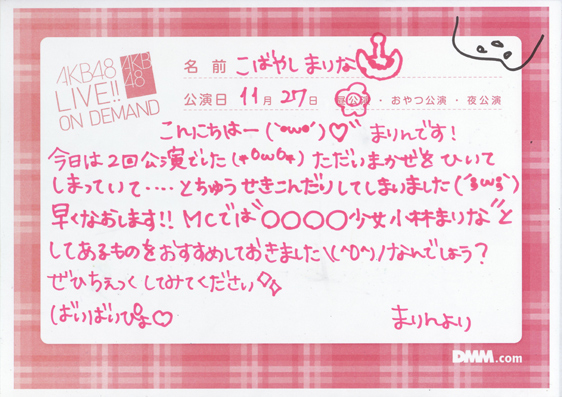 AKB48
LIVE!!
ON DEMAND
AKB
48
名前 こばやしまりな
公演日 11月27日 昼公演・おやつ公演・夜公演
こんにちはー(`•ω•´)♡ まりんです!
今日は2回公演でした(+0ω0+) ただいまかぜをひいて
しまっていて‥‥とちゅうせきこんだりしてしまいました(´;ω;`)
早くなおします!! MCでは"○○○○少女小林まりな"と
してあるものをおすすめしておきました\(^O^)/なんでしょう?
ぜひちぇっくしてみてください
ばいばいぴよ♡ まりんより
DMM.com